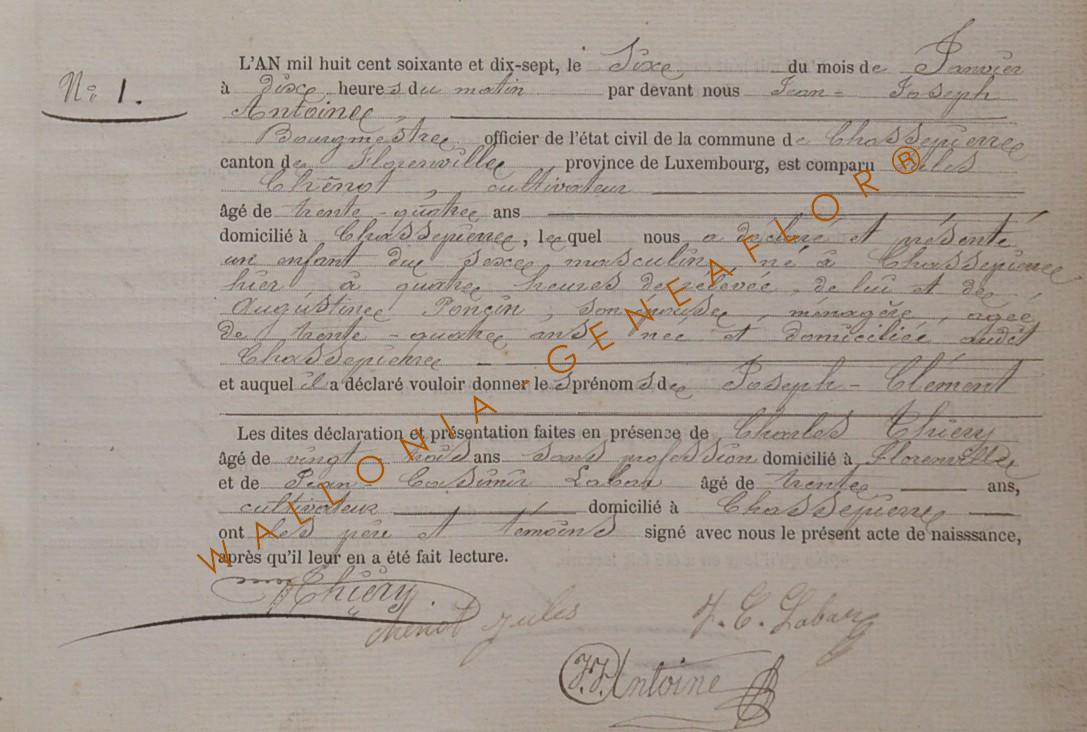 L'AN mil huit cent soixante et dix-sept, le Sixe du mois de Janvier
N° 1. à dixe heures du matin par devant nous Jean - Joseph
Antoine
Bourgmestre officier de l'état civil de la commune de Chassepierre
canton de Florenville province de Luxembourg, est comparu Jules
Chênot, cultivateur
âgé de trente - quatre ans
domicilié à Chassepierre, lequel nous a déclaré et présenté
un enfant du sexe masculin, né à Chassepierre
hier, à quatre heures de relevée, de lui et de
Augustine Ponçin, son épouse, ménagère, agée
de trente - quatre ans née et domiciliée audit
Chassepierre
et auquel il a déclaré vouloir donner les prénoms de Joseph - Clément
Les dites déclaration et présentation faites en présence de Charles Thiéry
âgé de vingt - trois ans sans profession domicilié à Florenville
et de Jean - Casimir Labar âgé de trente ans,
cultivateur domicilié à Chassepierre
ont les père et témoins signé avec nous le présent acte de naisssance,
après qu'il leur en a été fait lecture.
Thiéry
chenot jules J. C. Labar
J.J. Antoine
WALLONIA-GENEAFLOR®